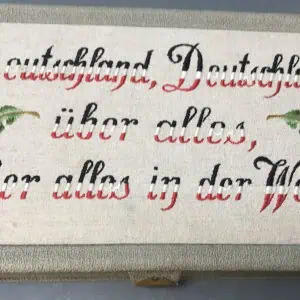 eutschland, Deutschla
über alles,
er alles in der We